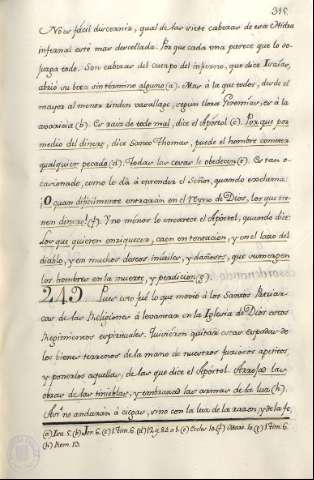 315.
No es fácil discernir, qual de las siete cabezas de esta Hidra
infernal esté mas descollada. Por que cada una parece que lo so-
paga todo. Son cabezas del cuerpo del infierno, que dice Isaias,
abrió su boca sin término alguno (a). Mas à la que todos, desde el
mayor al menor rinden vasallage, segun llora Jeremias, es à la
avaricia (b). Es raiz de todo mal, dice el Apóstol (c). Porque por
medio del dinero, dice Santo Thomas, puede el hombre cometer
qualquier pecado (d). Todas las cosas le obedecen (e). Es tan
ocasionado, como lo dà à entender el Señor, quando exclama:
¡O quan dificilmente entrarán en el Reyno de Dios, los que tie-
nen dinero! (f). Y no menos lo encarece el Apóstol, quando dice:
Los que quieren enriquecer, caen en tentacion, y en el lazo del
diablo, y en muchos deseos inútiles, y dañosos, que sumergen
los hombres en la muerte, y perdicion (g).
249 Pues esto fué lo que movió à los Santos Patriar-
cas de las Religiones à levantar en la Iglesia de Dios estos
Regimientos espirituales. Quisieron quitar estas espadas de
los bienes terrenos de la mano de nuestros furiosos apetitos,
y ponerles aquellas, de las que dice el Apóstol. Arrojad las
obras de las tinieblas, y embrazad las armas de la luz (h).
Asi no andarán à ciegas, sino con la luz de la razon, y de la fe,
(a) Isa. 5. (b) Jer. 6. (c) 1 Tim. 6. (d) (e) Eccles. 10. (f) (g) 1 Tim. 6.
(h) Rom. 13.